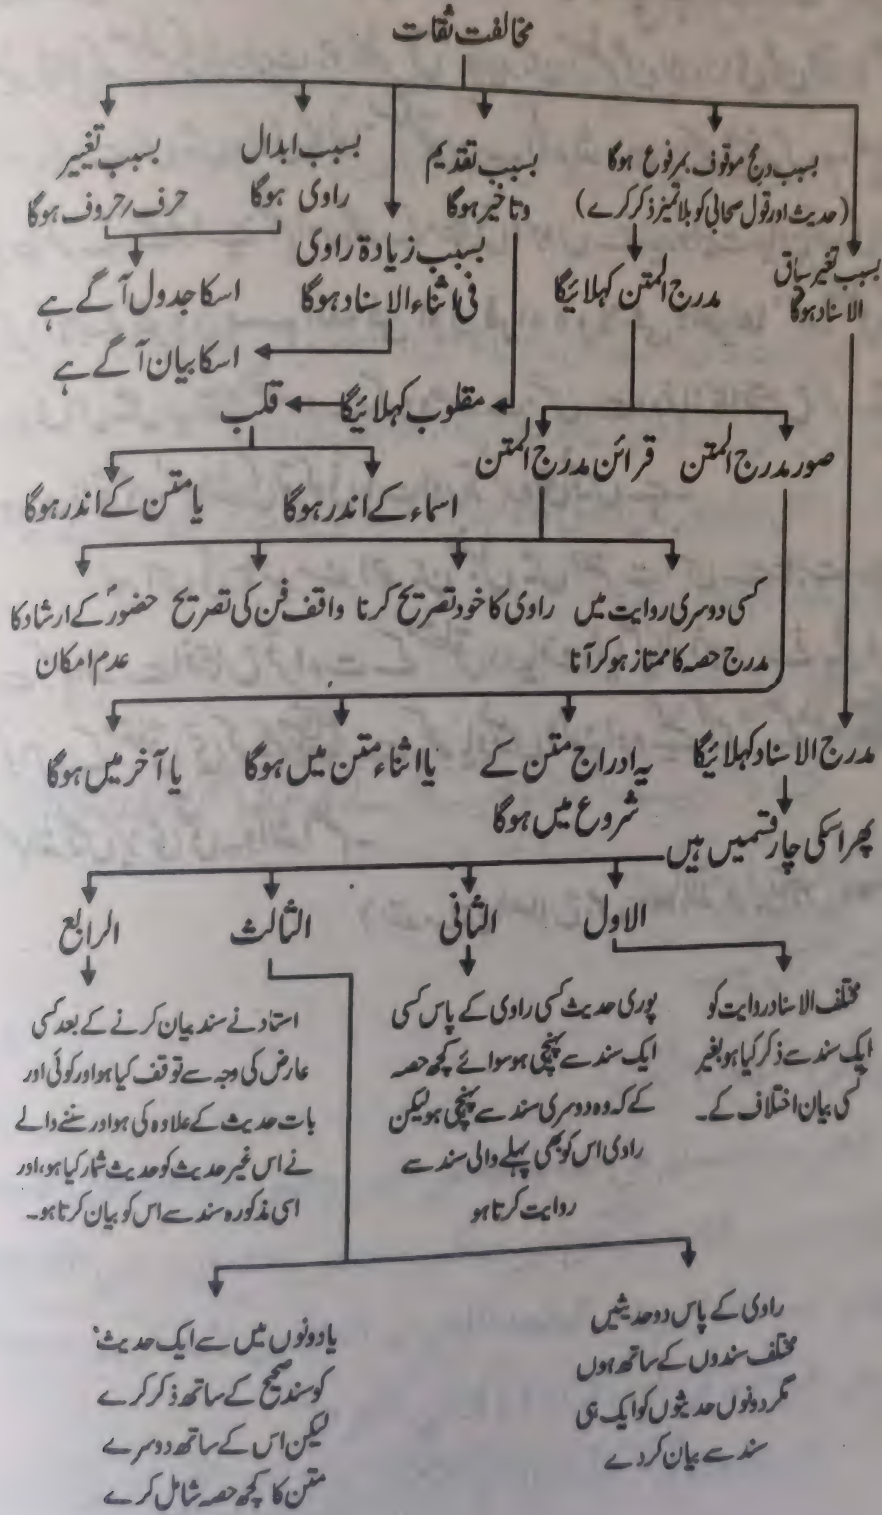 مخالفت ثقات
بسبب تغیر سیاق
الاسناد ہوگا
بسبب دمج موقوف بمرفوع ہوگا
(حدیث اور قول صحابی کو بلا تمیز ذکر کرے)
مدرج المتن کہلائیگا
بسبب تقدیم
وتاخیر ہوگا
بسبب زیادۃ راوی
فی اثناء الاسناد ہوگا
بسبب ابدال
راوی ہوگا
بسبب تغییر
حرف/حروف ہوگا
اسکا جدول آگے ہے
اسکا بیان آگے ہے
مقلوب کہلائیگا
قلب
صور مدرج المتن
قرائن مدرج المتن
اسماء کے اندر ہوگا
یا متن کے اندر ہوگا
کسی دوسری روایت میں
مدرج حصہ کا ممتاز ہو کر آنا
راوی کا خود تصریح کرنا
واقف فن کی تصریح
حضورؐ کے ارشاد کا
عدم امکان
مدرج الاسناد کہلائیگا
یہ ادراج متن کے
شروع میں ہوگا
یا اثناء متن میں ہوگا
یا آخر میں ہوگا
پھر اسکی چار قسمیں ہیں
الاول
الثانی
الثالث
الرابع
مختلف الاسناد روایت کو
ایک سند سے ذکر کیا ہو بغیر
کسی بیان اختلاف کے۔
پوری حدیث کسی راوی کے پاس کسی
ایک سند سے پہنچی ہو سوائے کچھ حصہ
کے کہ وہ دوسری سند سے پہنچی ہو لیکن
راوی اس کو بھی پہلے والی سند سے
روایت کرتا ہو
استاد نے سند بیان کرنے کے بعد کسی
عارض کی وجہ سے توقف کیا ہو اور کوئی اور
بات حدیث کے علاوہ کی ہو اور سننے والے
نے اس غیر حدیث کو حدیث شمار کیا ہو، اور
اسی مذکورہ سند سے اس کو بیان کرتا ہو۔
راوی کے پاس دو حدیثیں
مختلف سندوں کے ساتھ ہوں
مگر دونوں حدیثوں کو ایک ہی
سند سے بیان کر دے
یا دونوں میں سے ایک حدیث
کو سند صحیح کے ساتھ ذکر کرے
لیکن اس کے ساتھ دوسرے
متن کا کچھ حصہ شامل کرے